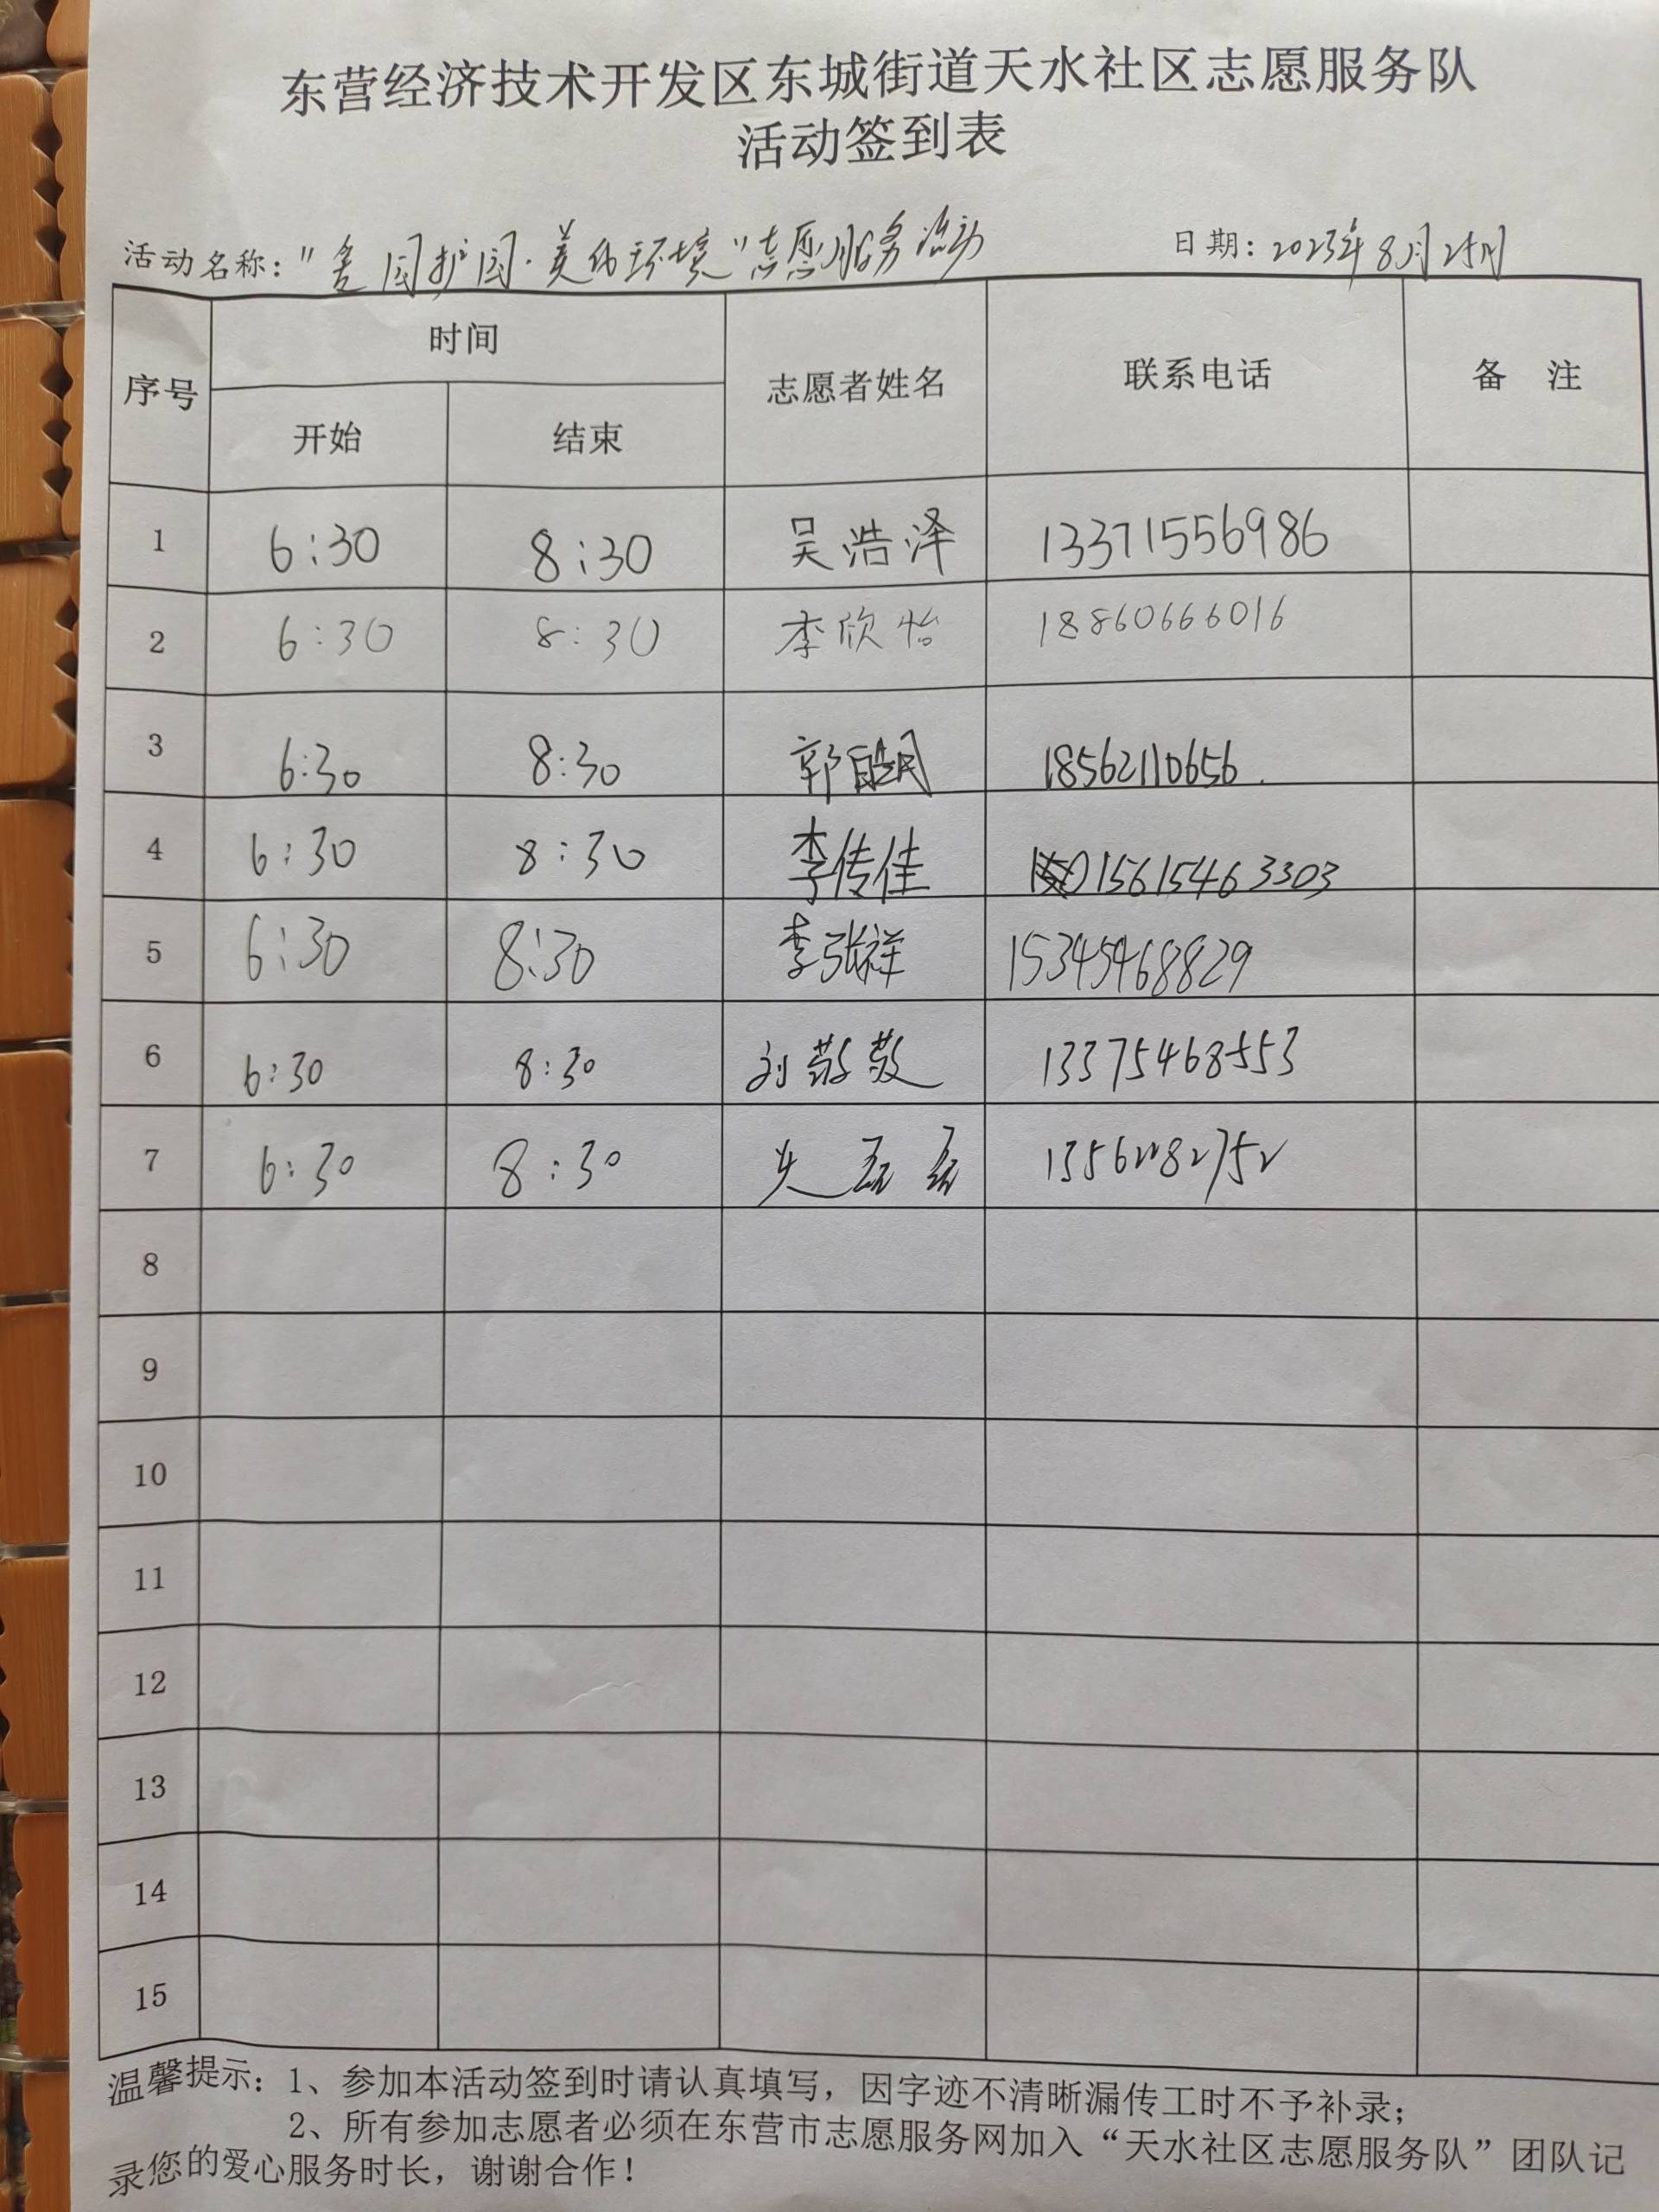 东营经济技术开发区东城街道天水社区志愿服务队
活动签到表
活动名称：“爱园护园·美化环境”志愿服务活动 日期：2023年8月25日
序号 时间 志愿者姓名 联系电话 备 注
开始 结束
1 6:30 8:30 吴浩泽 13371556986
2 6:30 8:30 李欣怡 18860666016
3 6:30 8:30 郭 18562110656
4 6:30 8:30 李传佳 15615463303
5 6:30 8:30 李张祥 15345468829
6 6:30 8:30 刘敬敬 13375468553
7 6:30 8:30
8
9
10
11
12
13
14
15
温馨提示：1、参加本活动签到时请认真填写，因字迹不清晰漏传工时不予补录；
2、所有参加志愿者必须在东营市志愿服务网加入“天水社区志愿服务队”团队记
录您的爱心服务时长，谢谢合作！